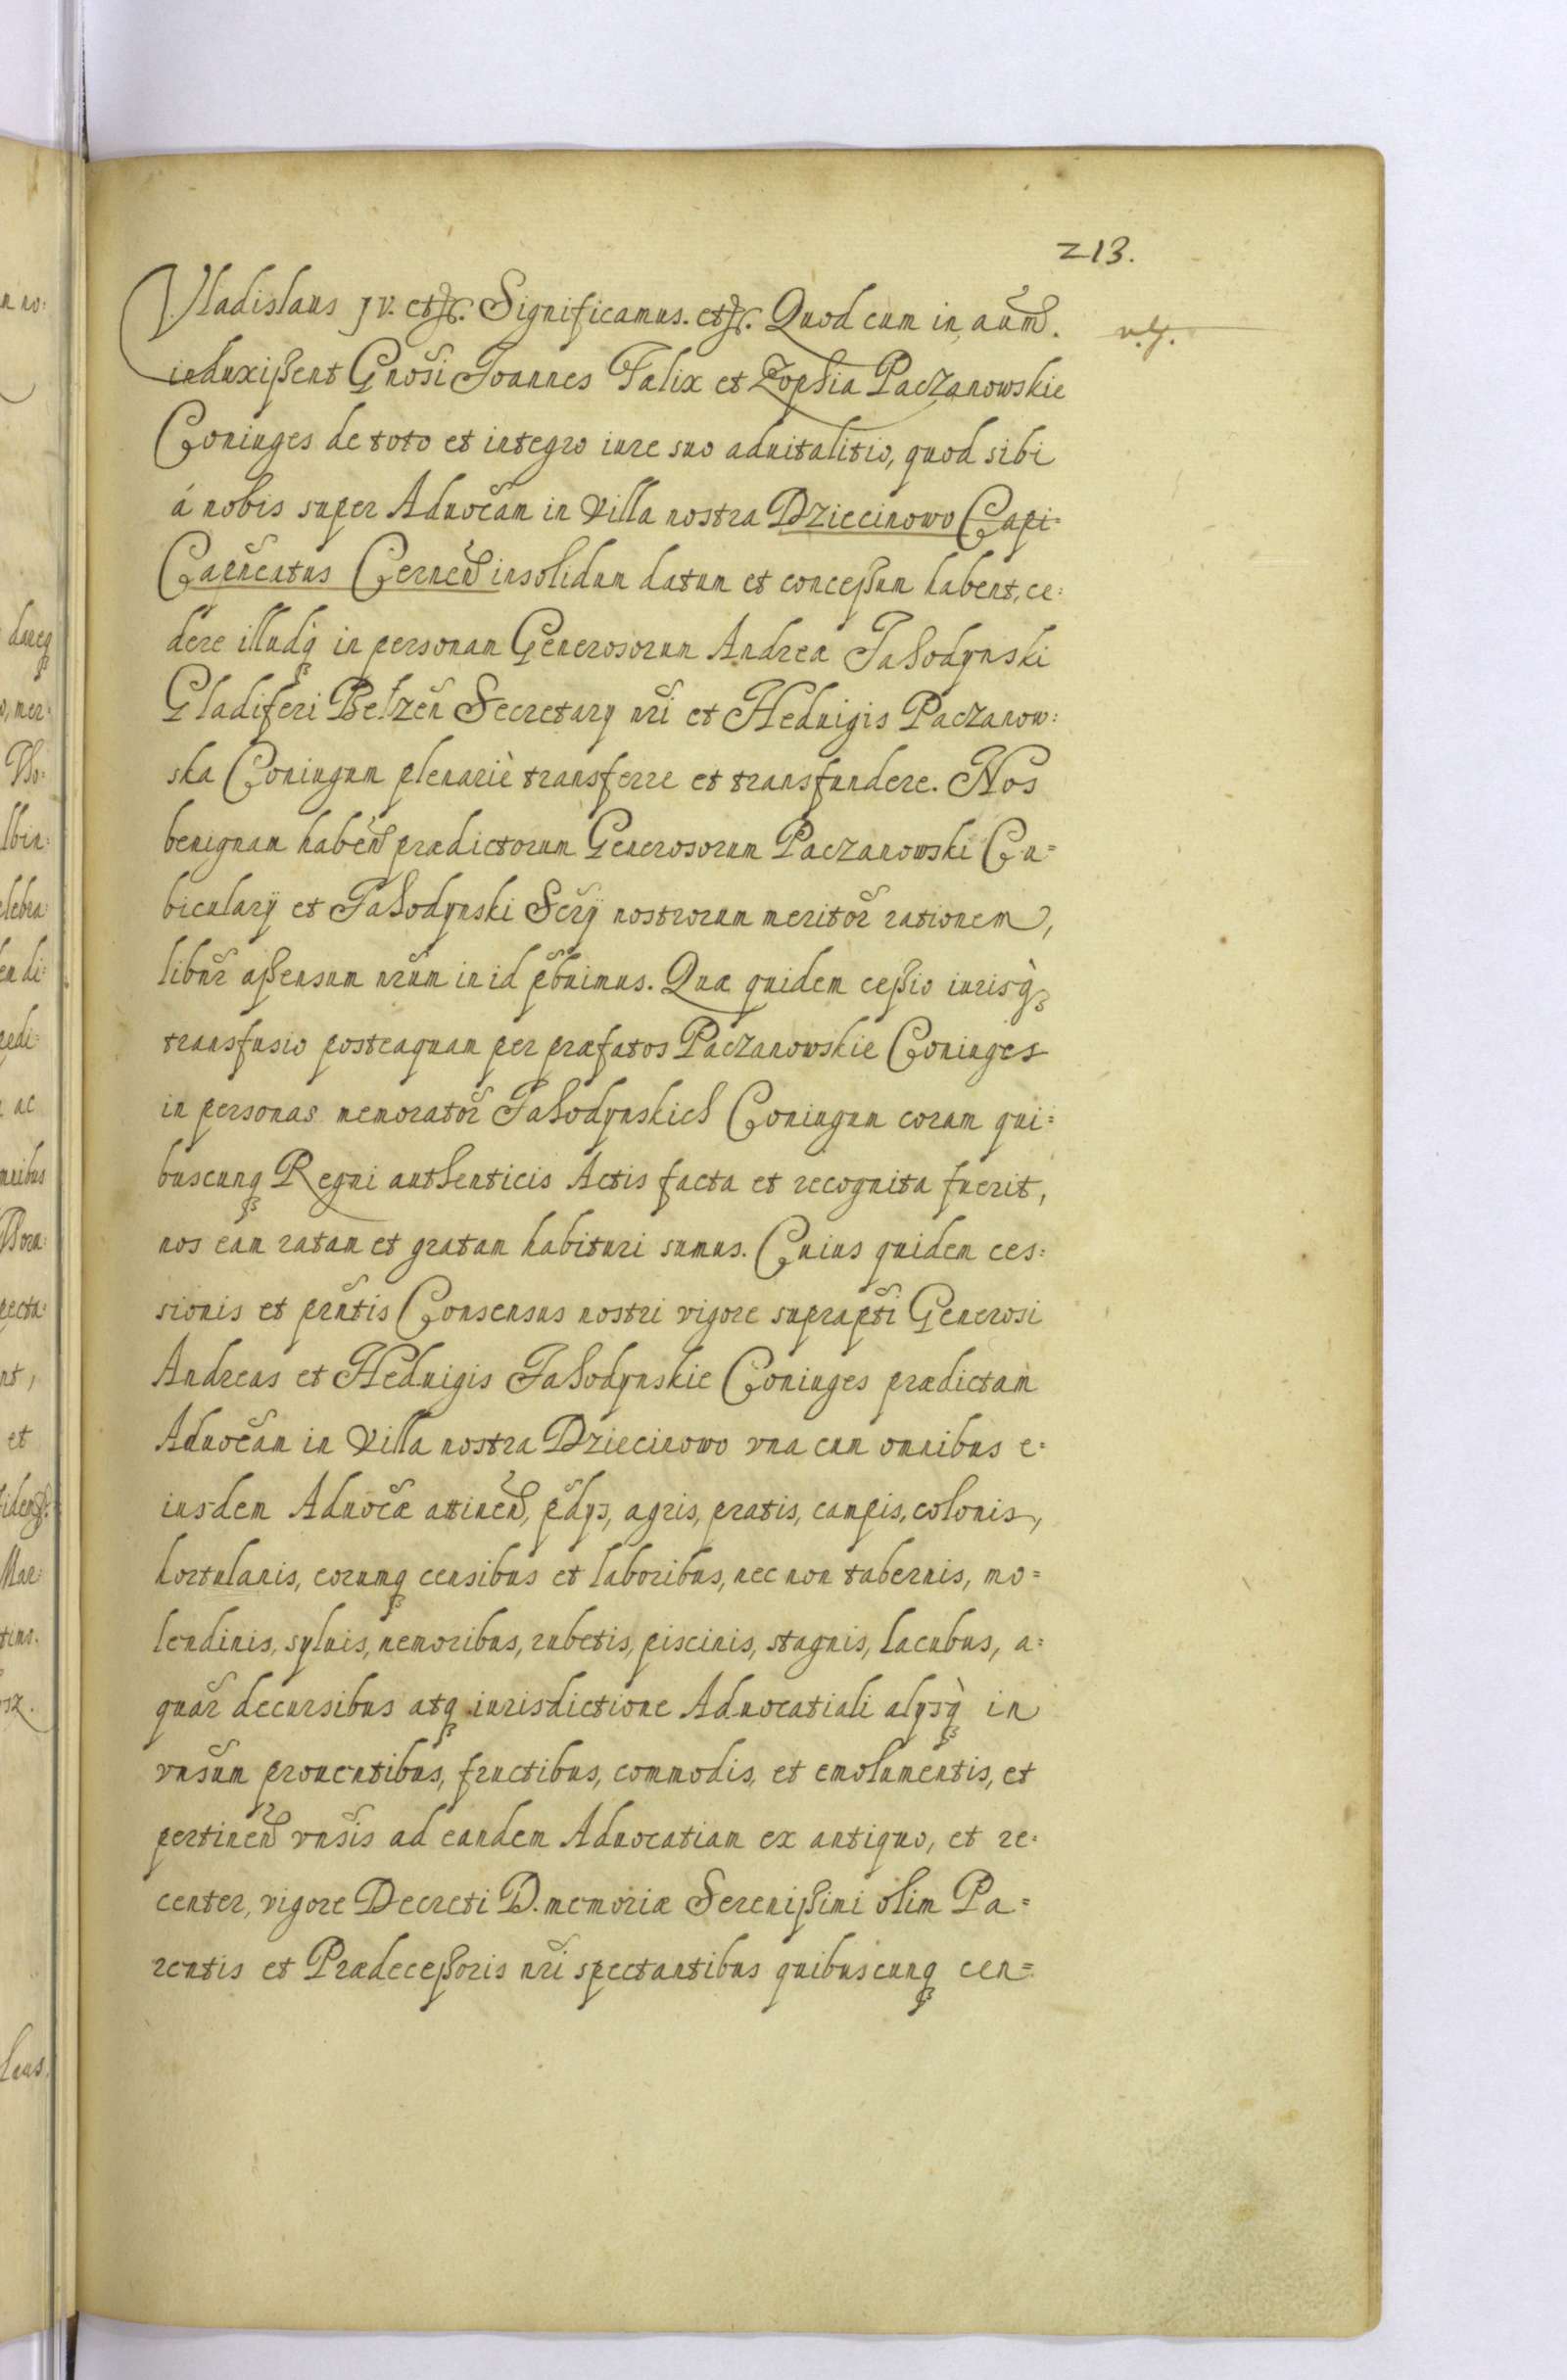 213.
Vladislaus IV. etc. Significamus. etc. Quod cum in aũm.
induxißent Gnõsi Joannes Falix et Zophia Paczanowskie
Coniuges de toto et integro iure suo aduitalitio, quod sibi
á nobis super Aduocãm in Villa nostra Dziecinowo Capi=
Capñeatus Cerneñ insolidum datum et conceßum habent, ce:
dere illudq̃ in personam Generosorum Andreæ Jahodynski
Gladiferi Belzeñ Secretarij nr̃i et Heduigis Paczanow:
ska Coniugum plenariè transferre et transfundere. Nos
benignam habeñ prædictorum Generosorum Paczanowski Cu=
bicularÿ et Jahodynski Sc̃rÿ nostrorum meritor̃ rationem,
libñr aßensum nr̃um in id p̃buimus. Quæ quidem ceßio iurisq̀
transfusio posteaquam per præfatos Paczanowskie Coniuges
in personas memorator̃ Jahodynskich Coniugum coram qui=
buscunq Regni authenticis Actis facta et recognita fuerit,
nos eam ratam et gratam habituri sumus. Cuius quidem ces:
sionis et prñtis Consensus nostri vigore suprapt̃i Generosi
Andreas et Heduigis Jahodynskie Coniuges prædictam
Aduocãm in Villa nostra Dziecinowo vna cum omnibus e:
iusdem Aduocæ̃ attineñ, p̃dijs, agris, pratis, campis, colonis,
hortulanis, eorumq censibus et laboribus, nec non tabernis, mo=
lendinis, syluis, nemoribus, rubetis, piscinis, stagnis, lacubus, a=
quar̃ decursibus atq iurisdictione Aduocatiali alijsq̀ in
vnsũm prouentibus, fructibus, commodis, et emolumentis, et
pertineñ vnsĩs ad eandem Aduocatiam ex antiquo, et re:
center, vigore Decreti D. memoriæ Serenißimi olim Pa=
rentis et Prædeceßoris nr̃i spectantibus quibuscunq cen=